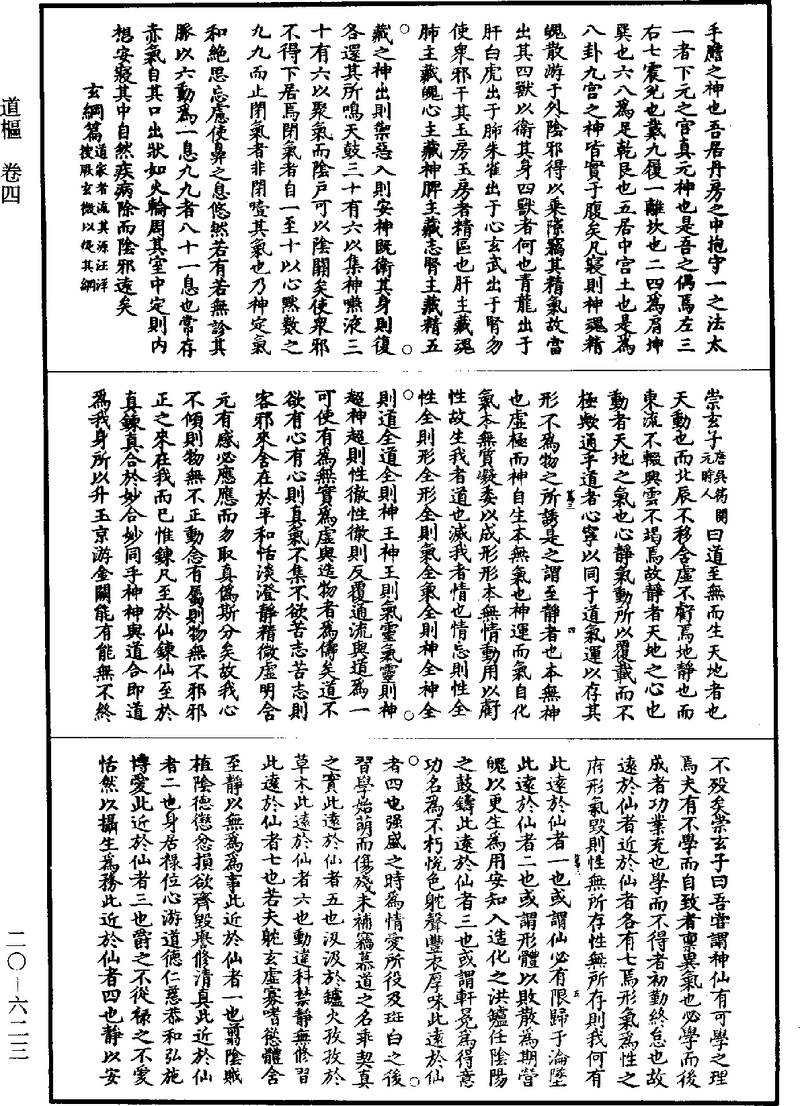 道樞　卷四
二〇—六二三
手膽之神也吾居丹房之中抱守一之法太
一者下元之宫真元神也是吾之偶焉左三
右七震兌也戴九履一離坎也二四爲肩坤
巽也六八爲足乾艮也五居中宫土也是爲
八卦九宫之神皆實于腹矣凡寢則神魂精
魄散游于外陰邪得以乘隙竊其精氣故當
出其四獸以衛其身四獸者何也青龍出于
肝白虎出于肺朱雀出于心玄武出于腎勿
使衆邪干其玉房玉房者精區也肝主藏魂
肺主藏魄心主藏神脾主藏志腎主藏精五
藏之神出則禦惡入則安神既衛其身則復
各還其所鳴天鼓三十有六以集神嚥液三
十有六以聚氣而陰戶可以陰關矣使衆邪
不得下居焉閉氣者自一至十以心黙數之
九九而止閉氣者非閉噎其氣也乃神定氣
和絶思忘慮使鼻之息悠然若有若無診其
脉以六動爲一息九九者八十一息也常存
赤氣自其口出狀如火輪周其室中定則内
想安寢其中自然疾病除而陰邪遠矣
玄綱篇道家者流其源汪洋搜取玄微以從其綱
崇玄子唐吳筠開元時人曰道至無而生天地者也
天動也而北辰不移含虛不虧焉地靜也而
東流不輟興雲不竭焉故靜者天地之心也
動者天地之氣也心靜氣動所以覆載而不
極歟通乎道者心寧以同于道氣運以存其
形不爲物之所誘是之謂至靜者也本無神
也虛極而神自生本無氣也神運而氣自化
氣本無質凝委以成形形本無情動用以虧
性故生我者道也滅我者情也情忘則性全
性全則形全形全則氣全氣全則神全神全
則道全道全則神王神王則氣靈氣靈則神
超神超則性徹性徹則反覆通流與道爲一
可使有爲無實爲虛與造物者爲儔矣道不
欲有心有心則真氣不集不欲苦志苦志則
客邪來舍在於平和恬淡澄靜精微虛明含
元有感必應應而勿取真僞斯分矣故我心
不傾則物無不正動念有屬則物無不邪邪
正之來在我而已惟鍊凡至於仙鍊仙至於
真鍊真合於妙合妙同乎神神與道合即道
爲我身所以升玉京游金闕能有能無不終
不歿矣崇玄子曰吾嘗謂神仙有可學之理
焉夫有不學而自致者稟異氣也必學而後
成者功業充也學而不得者初勤終怠也故
遠於仙者近於仙者各有七焉形氣爲性之
府形氣毀則性無所存性無所存則我何有
此遠於仙者一也或謂仙必有限歸于淪墜
此遠於仙者二也或謂形體以敗散爲期營
魄以更生爲用安知入造化之洪鑪任陰陽
之鼓鑄此遠於仙者三也或謂軒冕爲得意
功名爲不朽悅色躭聲豐衣厚味此遠於仙
者四也强盛之時爲情愛所役及斑白之後
習學始萌而傷殘未補竊慕道之名乖契真
之實此遠於仙者五也汲汲於鑪火孜孜於
草木此遠於仙者六也動違科禁靜無修習
此遠於仙者七也若夫躭玄虛寡嗜慾體含
至靜以無爲爲事此近於仙者一也翦陰賊
植陰德懲忿損欲齊毀譽修清真此近於仙
者二也身居祿位心游道德仁慈恭和弘施
博愛此近於仙者三也爵之不從祿之不愛
恬然以攝生爲務此近於仙者四也靜以安